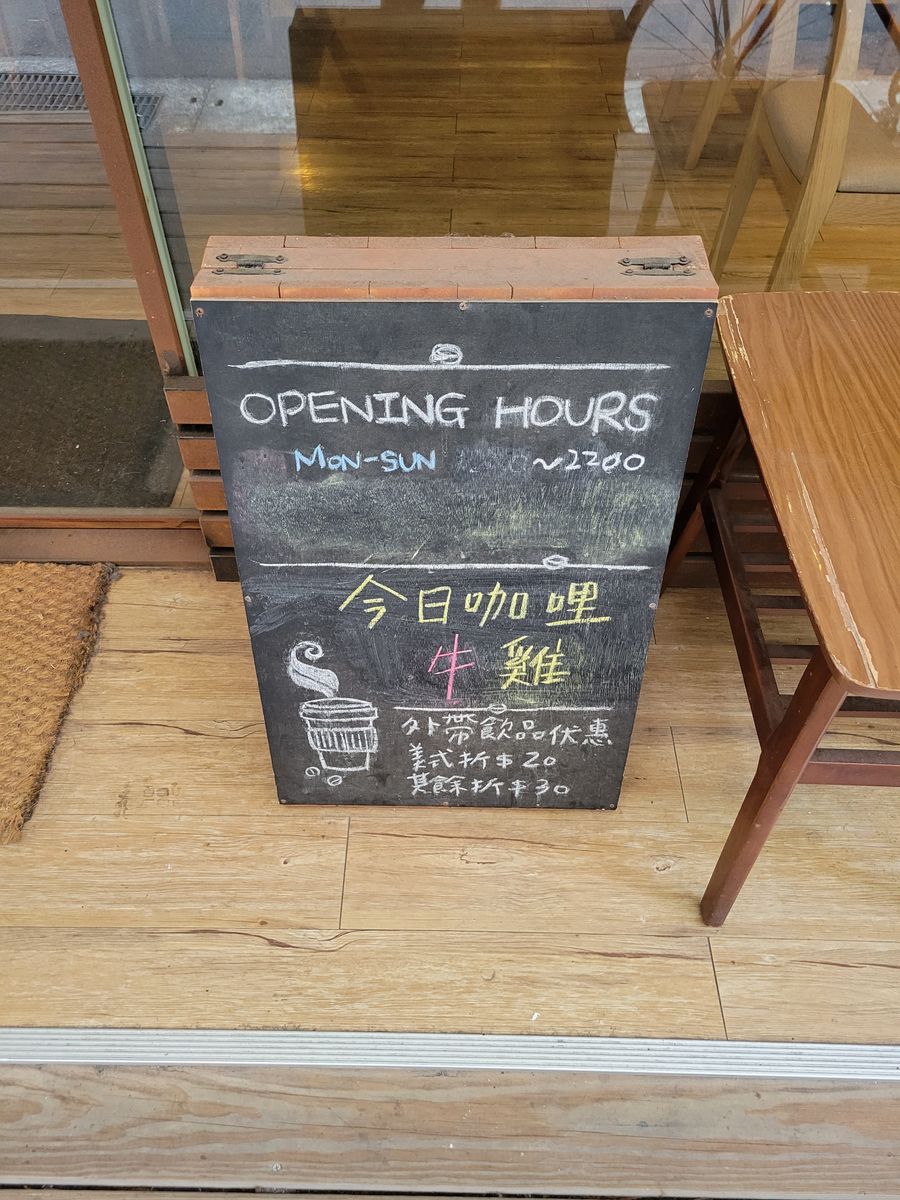 OPENING HOURS
MON-SUN ~2200
今日咖哩
牛 雞
外帶飲品优惠
美式折$20
其餘折$30